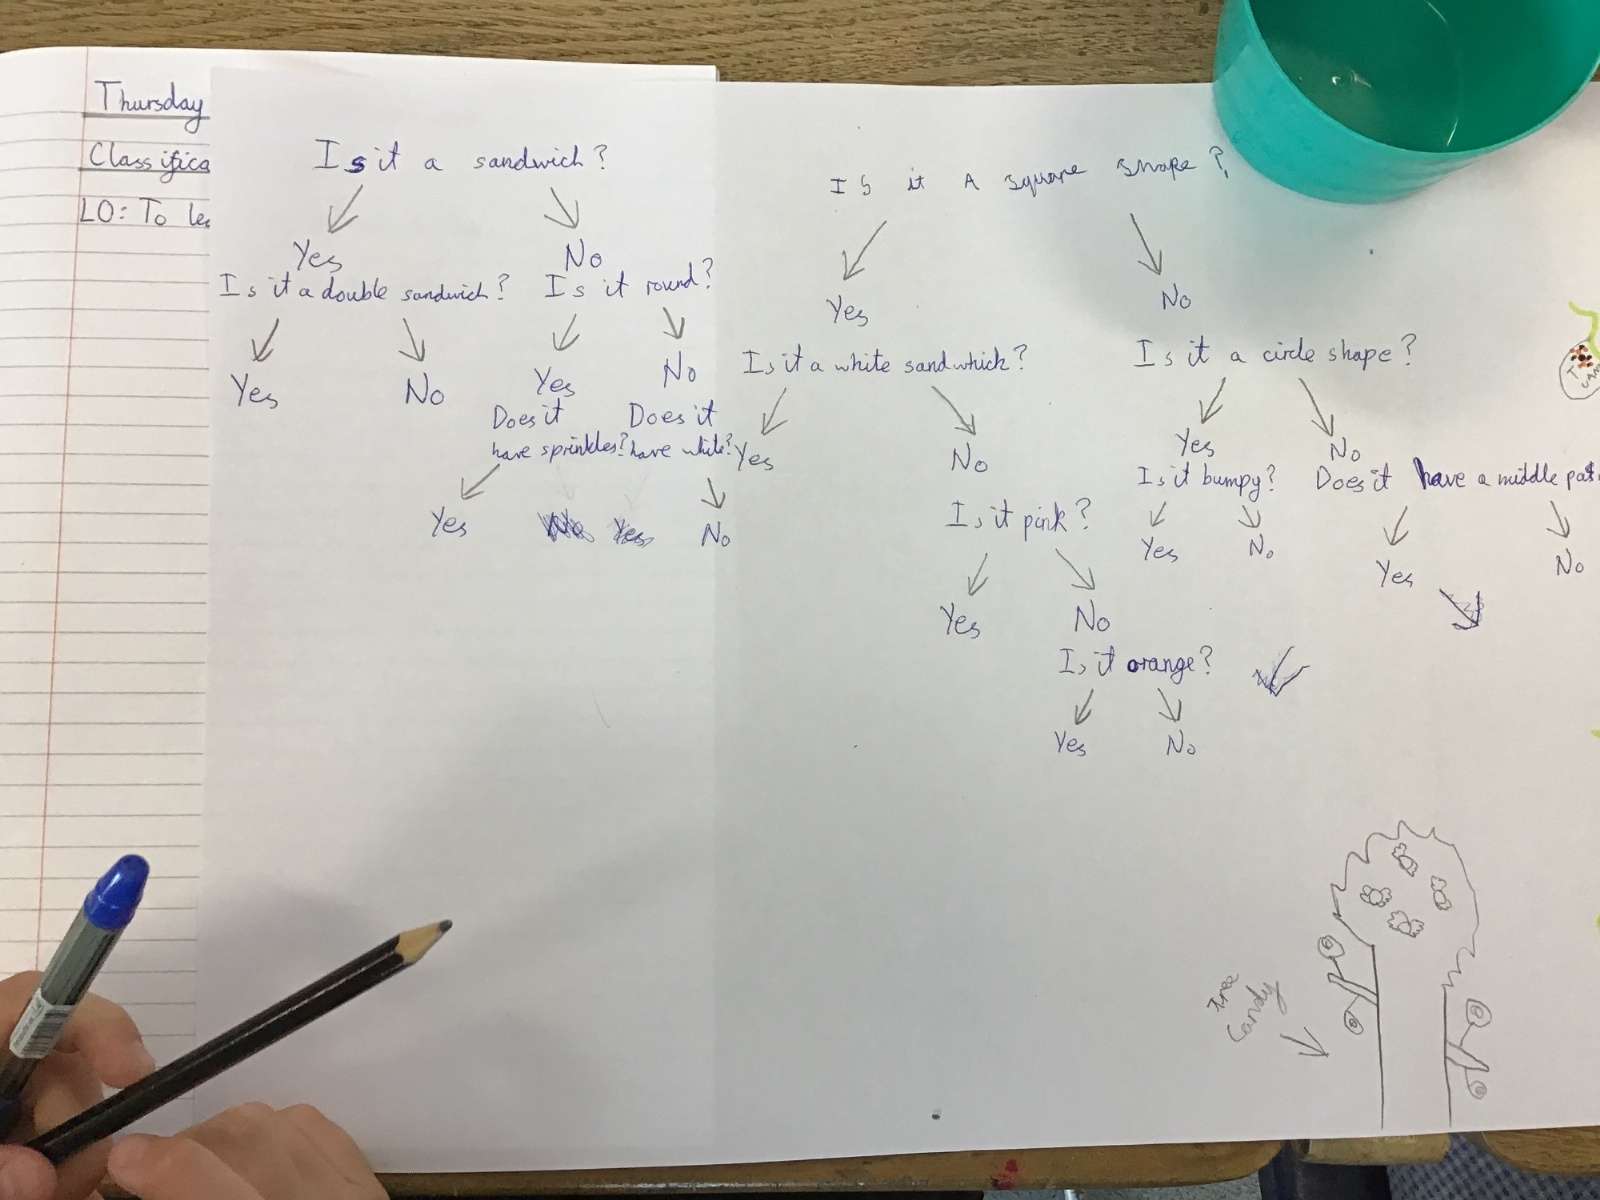 Thursday
Classifica
LO: To lea
Is it a sandwich?
Yes
No
Is it a double sandwich?
Is it round?
Yes
No
Yes
No
Does it
have sprinkles?
Does it
have white?
Yes
Yes
No
Is it A square shape?
Yes
No
Is it a white sandwhich?
Is it a circle shape?
Yes
No
Yes
No
Is it pink?
Is it bumpy?
Does it have a middle
Yes
No
Yes
No
Yes
No
Is it orange?
Yes
No
Candy